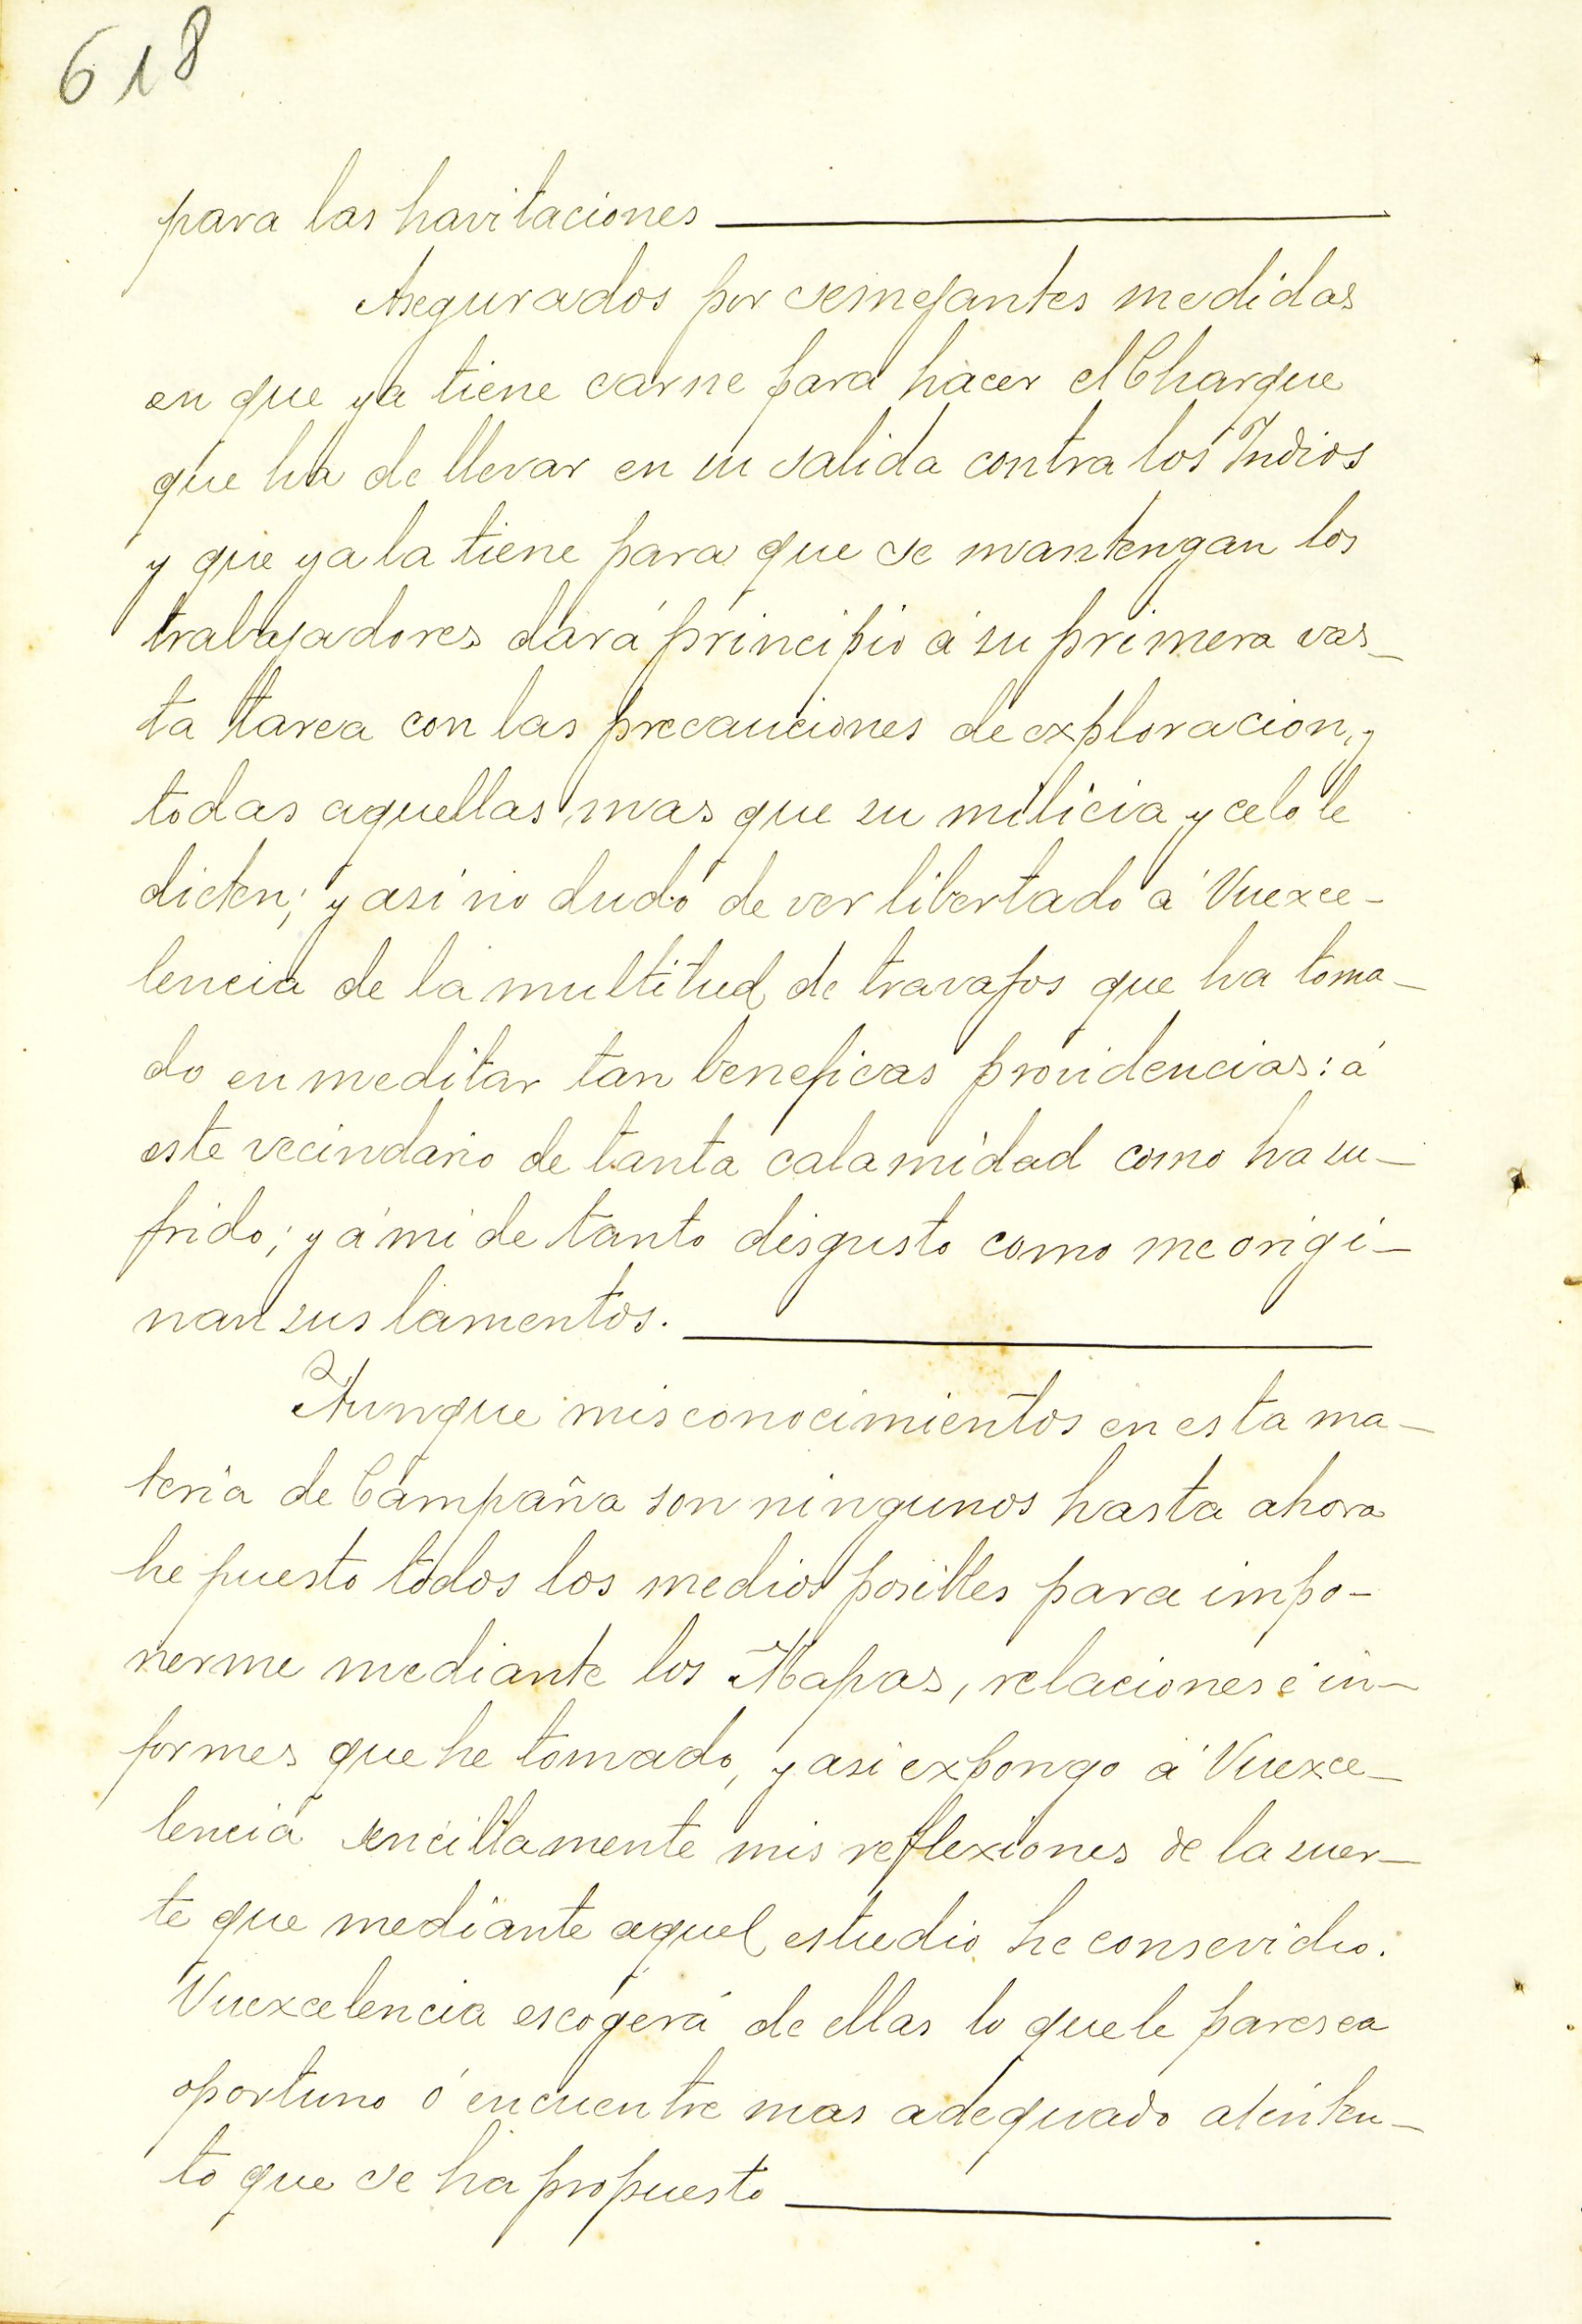 618
para las havitaciones
Asegurados por semejantes medidas
en que ya tiene carne para hacer el Charque
que ha de llevar en su salida contra los Indios
y que ya la tiene para que se mantengan los
trabajadores dará principio á su primera vas-
ta tarea con las precauciones de exploracion, y
todas aquellas mas que su milicia y celo le
dicten; y asi no dudo de ver libertado á Vuexce-
lencia de la multitud de travajos que ha toma-
do en meditar tan beneficas providencias: á
este vecindario de tanta calamidad como ha su-
frido; y á mi de tanto disgusto como me origi-
nan sus lamentos.
Aunque mis conocimientos en esta ma-
teria de Campaña son ningunos hasta ahora
he puesto todos los medios posibles para impo-
nerme mediante los Mapas, relaciones é in-
formes que he tomado, y asi expongo á Vuexce-
lencia sencillamente mis reflexiones de la suer-
te que mediante aquel estudio he consevido.
Vuexcelencia escogerá de ellas lo que le paresca
oportuno ó encuentre mas adequado al inten-
to que se ha propuesto